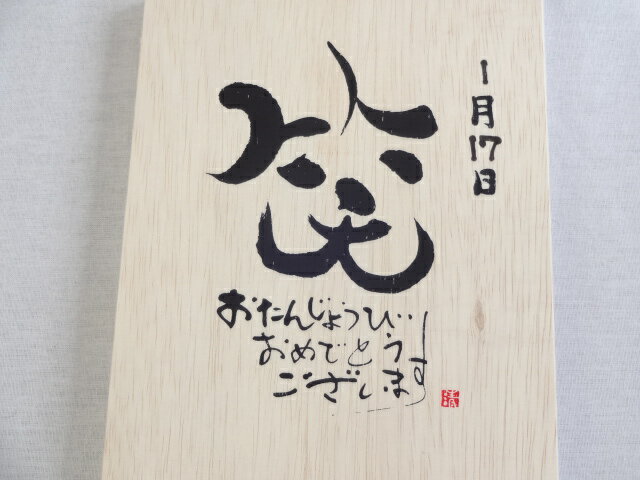 1月17日
笑
おたんじょうび
おめでとう
ございます